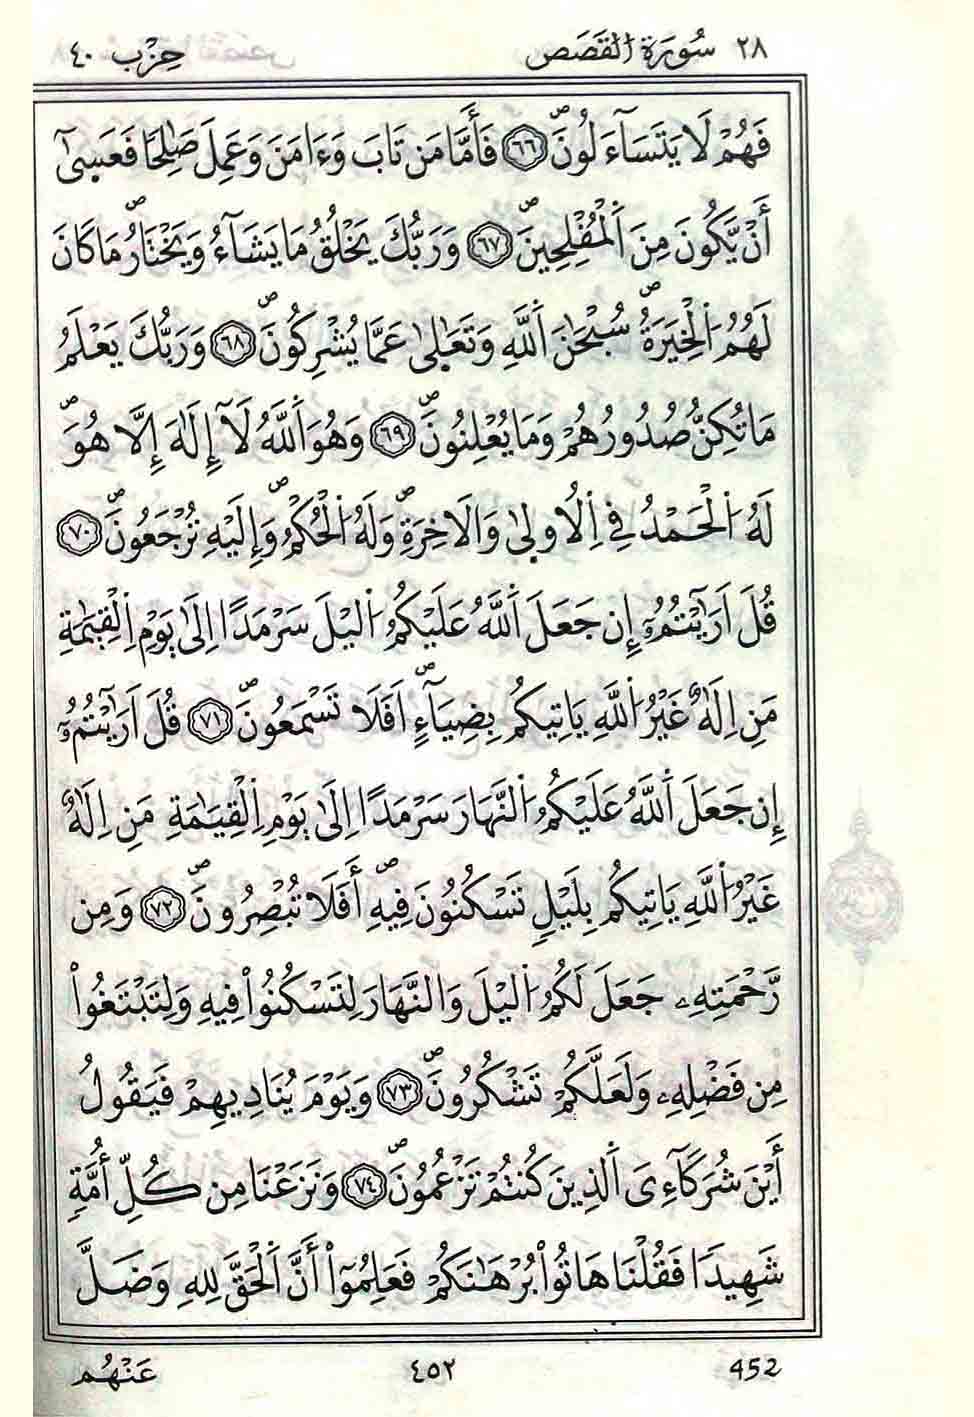 ٢٨ سُورَةُ اَ۬لْقَصَصِ حِزْب ٤٠
فَهُمْ لَا يَتَسَآءَلُونَۖ ٦٦ فَأَمَّا مَن تَابَ وَءَامَنَ وَعَمِلَ صَٰلِحاٗ فَعَس۪ىٰٓ
أَنْ يَّكُونَ مِنَ اَ۬لْمُفْلِحِينَۖ ٦٧ وَرَبُّكَ يَخْلُقُ مَا يَشَآءُ وَيَخْتَارُۖ مَا كَانَ
لَهُمُ اُ۬لْخِيَرَةُۖ سُبْحَٰنَ اَ۬للَّهِ وَتَعَٰل۪ىٰ عَمَّا يُشْرِكُونَۖ ٦٨ وَرَبُّكَ يَعْلَمُ
مَا تُكِنُّ صُدُورُهُمْ وَمَا يُعْلِنُونَۖ ٦٩ وَهُوَ اَ۬للَّهُ لَآ إِلَٰهَ إِلَّا هُوَۖ
لَهُ اُ۬لْحَمْدُ فِے اِ۬لُاول۪ىٰ وَالَاخِرَةِۖ وَلَهُ اُ۬لْحُكْمُۖ وَإِلَيْهِ تُرْجَعُونَۖ ٧٠
قُلَ اَرَٰٓيْتُمُۥٓ إِن جَعَلَ اَ۬للَّهُ عَلَيْكُمُ اُ۬ليْلَ سَرْمَداً اِلَىٰ يَوْمِ اِ۬لْقِيَٰمَةِ
مَنِ اِلَٰهٌ غَيْرُ اُ۬للَّهِ يَاتِيكُم بِضِيَآءٍۖ اَفَلَا تَسْمَعُونَۖ ٧١ قُلَ اَرَٰٓيْتُمُۥٓ
إِن جَعَلَ اَ۬للَّهُ عَلَيْكُمُ اُ۬لنَّهَارَ سَرْمَداً اِلَىٰ يَوْمِ اِ۬لْقِيَٰمَةِ مَنِ اِلَٰهٌ
غَيْرُ اُ۬للَّهِ يَاتِيكُم بِلَيْلٖ تَسْكُنُونَ فِيهِۖ أَفَلَا تُبْصِرُونَۖ ٧٢ وَمِن
رَّحْمَتِهِۦ جَعَلَ لَكُمُ اُ۬ليْلَ وَالنَّهَارَ لِتَسْكُنُواْ فِيهِ وَلِتَبْتَغُواْ
مِن فَضْلِهِۦ وَلَعَلَّكُمْ تَشْكُرُونَۖ ٧٣ وَيَوْمَ يُنَادِيهِمْ فَيَقُولُ
أَيْنَ شُرَكَآءِيَ اَ۬لذِينَ كُنتُمْ تَزْعُمُونَۖ ٧٤ وَنَزَعْنَا مِن كُلِّ أُمَّةٖ
شَهِيداٗ فَقُلْنَا هَاتُواْ بُرْهَٰنَكُمْ فَعَلِمُوٓاْ أَنَّ اَ۬لْحَقَّ لِلهِ وَضَلَّ
452 ٤٥٢ عَنْهُم